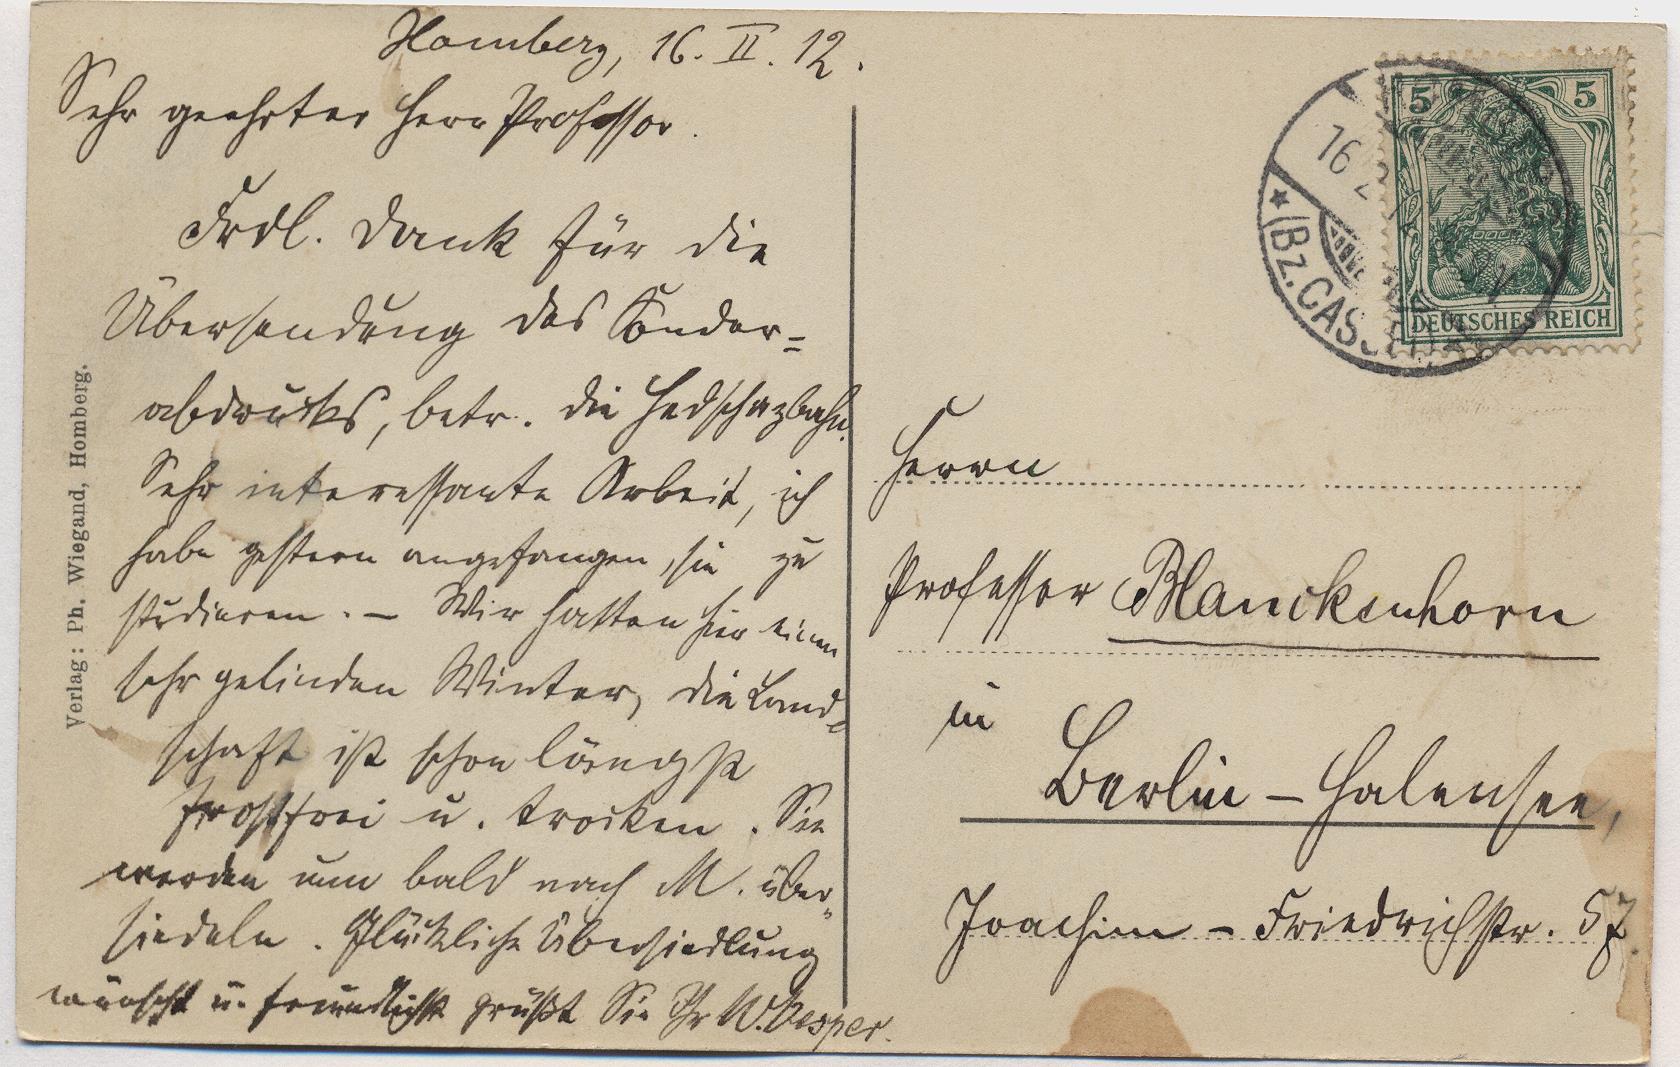 Homberg, 16. II. 12.
Sehr geehrter Herr Professor.
Frdl. Dank für die
Übersendung des Sonder=
abdrucks, betr. die Hedschazbahn.
Sehr interessante Arbeit, ich
habe gestern angefangen, sie zu
studieren. – Wir hatten hier einen
sehr gelinden Winter, die Land=
schaft ist schon längst
frostfrei u. trocken. Sie
werden nun bald nach M. über-
siedeln. Glückliche Übersiedlung
wünscht u. freundlichst grüßt Sie Ihr W. Vesper.
Verlag: Ph. Wiegand, Homberg.
5 5
DEUTSCHES REICH
16 2
(Bz. CASSEL)
Herrn
Professor Blanckenhorn
in
Berlin – Halensee,
Joachim – Friedrichstr. 57.